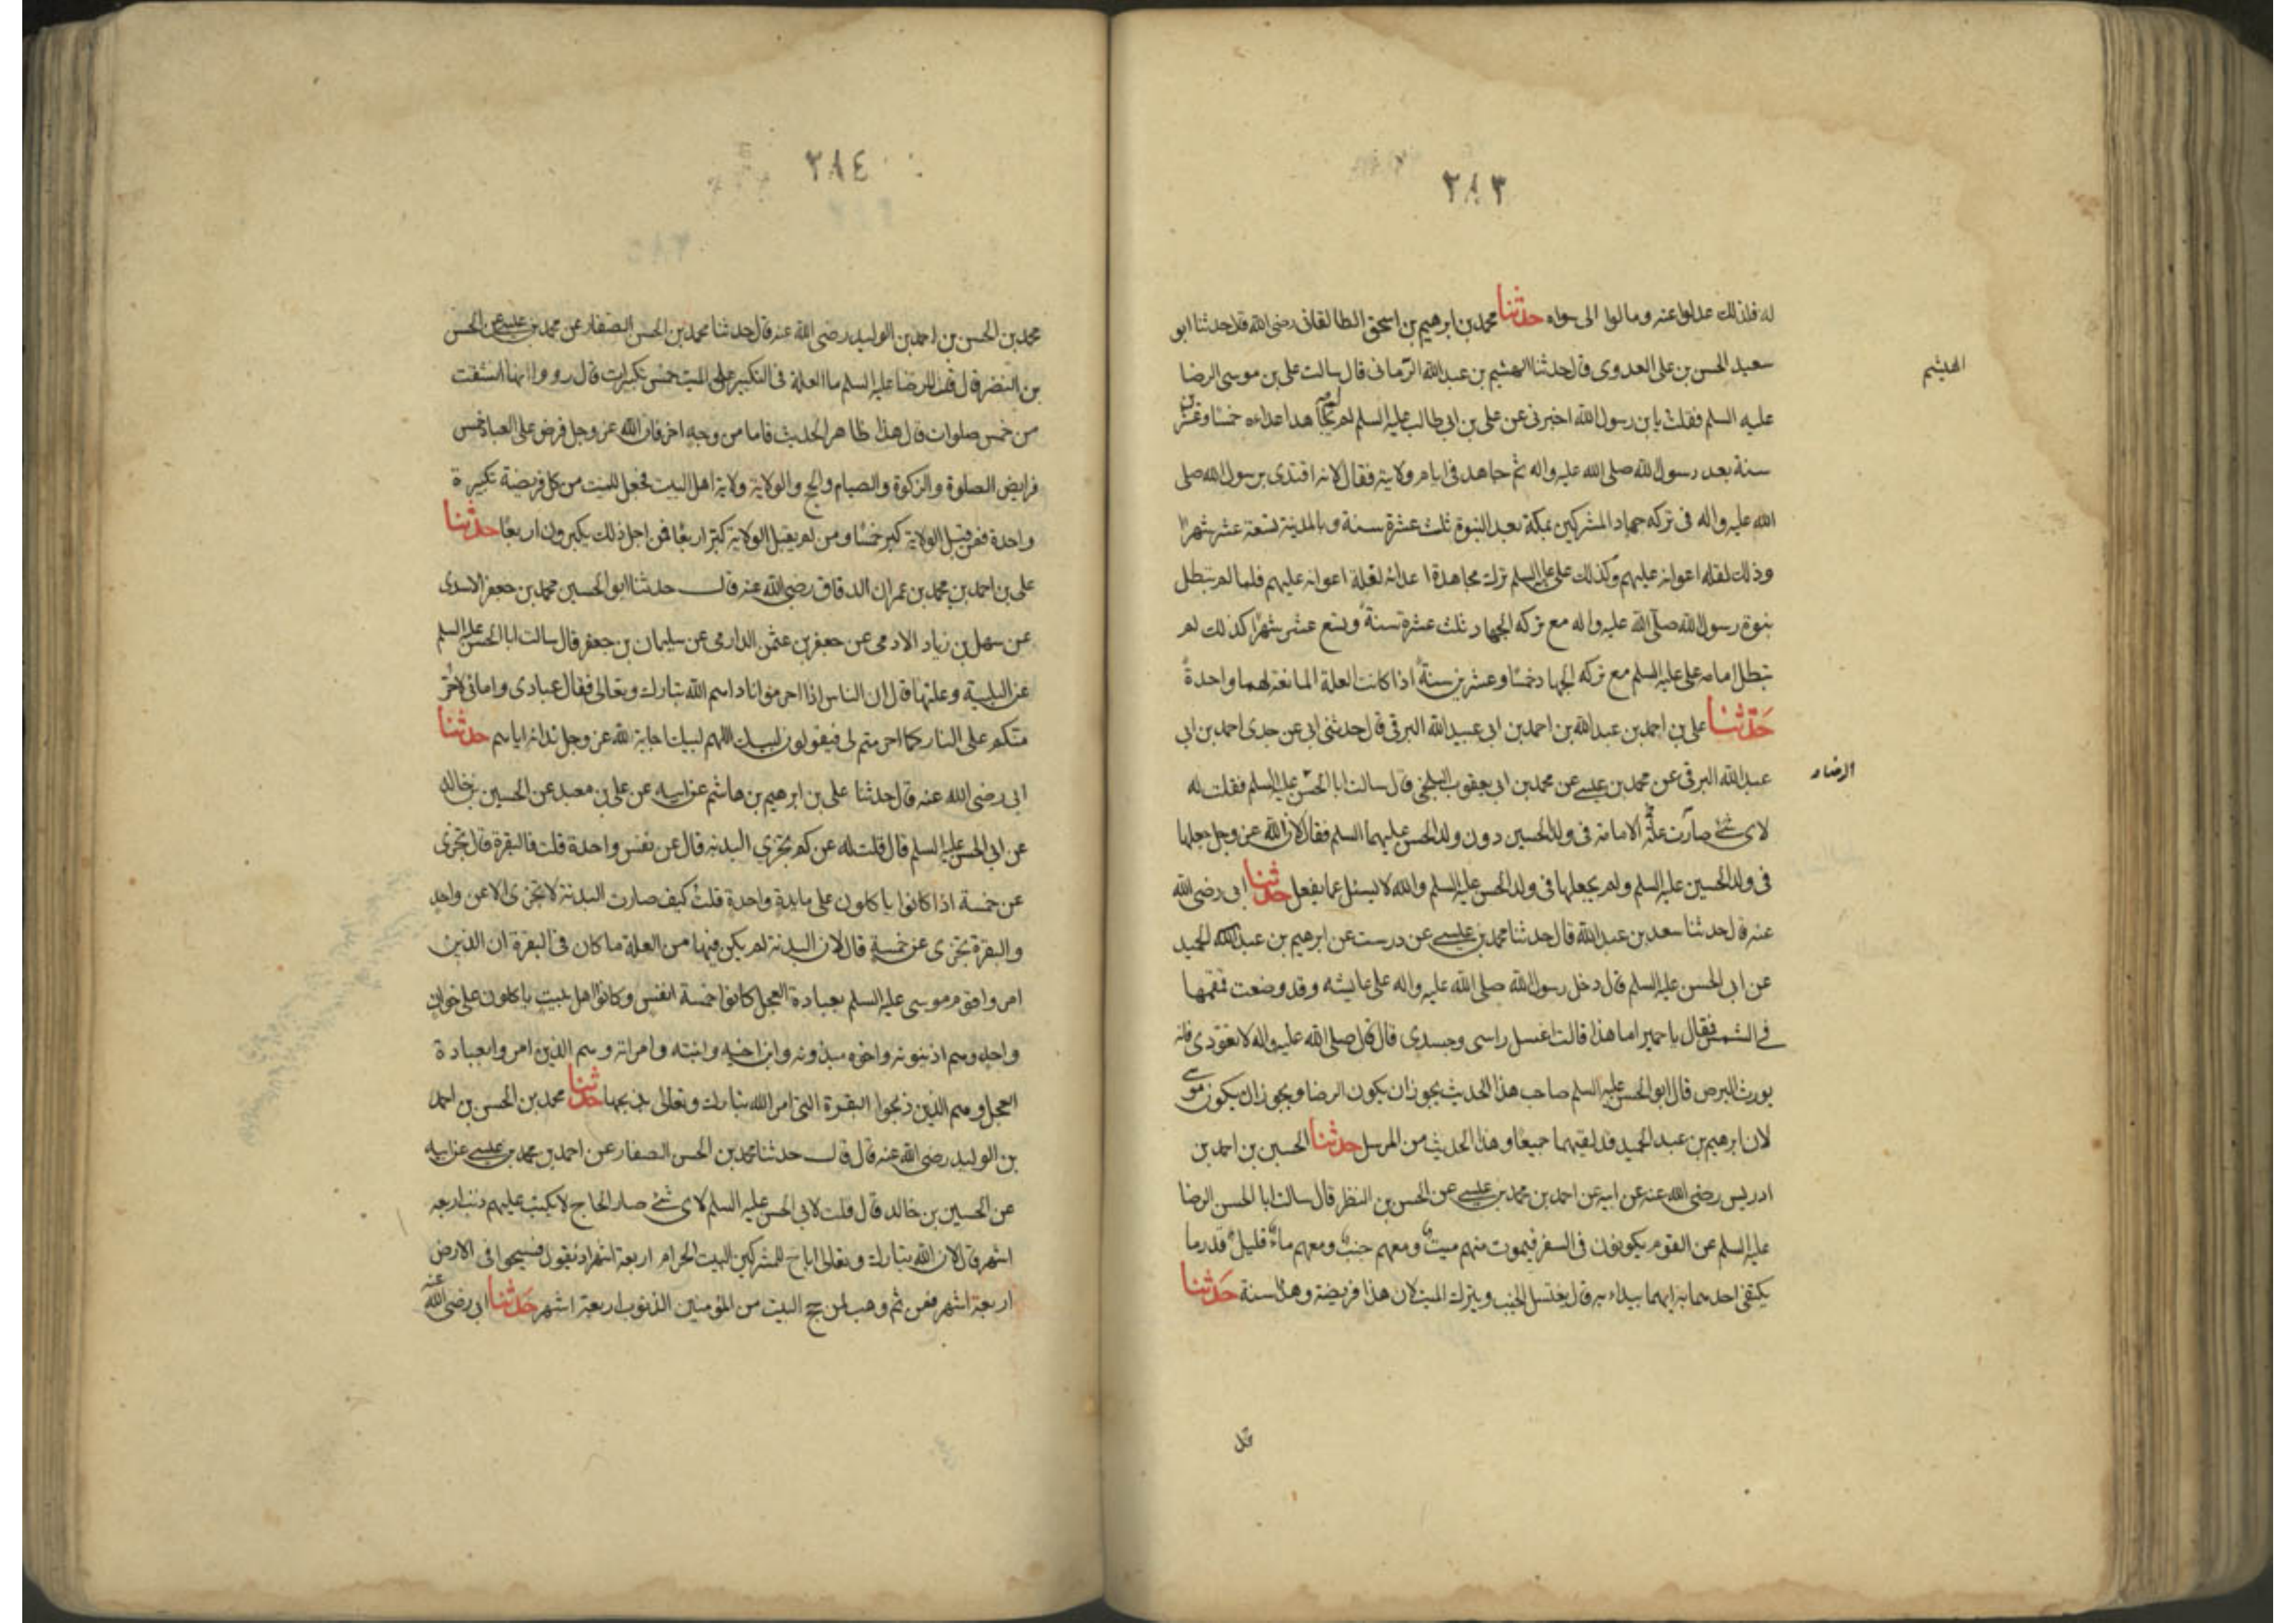 ٢٨٣
له فلذلك عدلوا عنه ومالوا الى سواه حدثنا محمد بن ابرهيم بن اسحق الطالقانى رضى الله قال حدثنا ابو
سعيد الحسن بن على العدوى قال حدثنا الهشيم بن عبد الله الرمانى قال سالت على بن موسى الرضا
الهيثم
عليه السلم فقلت يا بن رسول الله اخبرنى عن على بن ابى طالب عليه السلم لم لم يجاهد اعداءه خمسا وعشرين
سنة بعد رسول الله صلى الله عليه واله ثم جاهد فى ايام ولايته فقال لانه اقتدى برسول الله صلى
الله عليه واله فى تركه جهاد المشركين بمكة بعد النبوة ثلث عشرة سنة وبالمدينة تسعة عشر شهرا
وذلك لقلة اعوانه عليهم وكذلك على عليه السلم ترك مجاهدة اعدائه لقلة اعوانه عليهم فلما لم تبطل
نبوة رسول الله صلى الله عليه واله مع تركه الجهاد ثلث عشرة سنة وتسع عشر شهرا كذلك لم
تبطل امامه على عليه السلم مع تركه الجهاد خمسا وعشرين سنة اذا كانت العلة المانعة لهما واحدة
حدثنا على بن احمد بن عبد الله بن احمد بن ابى عبيد الله البرقى قال حدثنى ابى عن جدى احمد بن ابى
عبد الله البرقى عن محمد بن عيسى عن محمد بن ابى يعقوب البلخى قال سالت ابا الحسن عليه السلم فقلت له
الرضا
لاى شئ صارت علة الامامة فى ولد الحسين دون ولد الحسن عليهما السلم فقال لان الله عز وجل جعلها
فى ولد الحسين عليه السلم ولم يجعلها فى ولد الحسن عليه السلم والله لا يسئل عما يفعل حدثنا ابى رضى الله
عنه قال حدثنا سعد بن عبد الله قال حدثنا محمد بن عيسى عن درست عن ابرهيم بن عبد الحميد
عن ابى الحسن عليه السلم قال دخل رسول الله صلى الله عليه واله على عايشه وقد وضعت قمقمها
فى الشمس فقال يا حميرا ما هذا قالت اغسل راسى وجسدى قال قال صلى الله عليه واله لا تعودى فانه
يورث البرص قال ابو الحسن عليه السلم صاحب هذا الحديث يجوز ان يكون الرضا ويجوز ان يكون موسى
لان ابرهيم بن عبد الحميد قد لقيهما جميعا وهذا الحديث من المرسل حدثنا الحسين بن احمد بن
ادريس رضى الله عنه عن ابيه عن احمد بن محمد بن عيسى عن الحسن بن النظر قال سالت ابا الحسن الرضا
عليه السلم عن القوم يكونون فى السفر فيموت منهم ميت ومعهم جنب ومعهم ماء قليل قدر ما
يكتفى احدهما به ايهما يبداء به قال يغتسل الجنب ويترك الميت لان هذا فريضة وهذا سنة حدثنا
٢٨٤
محمد بن الحسن بن احمد بن الوليد رضى الله عنه قال حدثنا محمد بن الحسن الصفار عن محمد بن عيسى عن الحسن
بن النضر قال قلت للرضا عليه السلم ما العلة فى التكبير على الميت خمس تكبيرات قال رووا انها اشتقت
من خمس صلوات قال هذا ظاهر الحديث فاما من وجه اخر فان الله عز وجل فرض على العباد خمس
فرايض الصلوة والزكوة والصيام والحج والولاية ولاية اهل البيت فجعل للميت من كل فريضة تكبيرة
واحدة فمن قبل الولاية كبر خمسا ومن لم يقبل الولاية كبر اربعا فمن اجل ذلك يكبرون اربعا حدثنا
على بن احمد بن محمد بن عمران الدقاق رضى الله عنه قال حدثنا ابو الحسين محمد بن جعفر الاسدى
عن سهل بن زياد الادمى عن جعفر بن عثمن الدارمى عن سليمان بن جعفر قال سالت ابا الحسن عليه السلم
عن التلبية وعلتها قال ان الناس اذا احرموا ناداهم الله تبارك وتعالى فقال عبادى وامائى لاحرمن
منكم على النار كما احرمتم لى فيقولون لبيك اللهم لبيك اجابة لله عز وجل ندائه اياهم حدثنا
ابى رضى الله عنه قال حدثنا على بن ابرهيم بن هاشم عن ابيه عن على بن معبد عن الحسين بن خالد
عن ابى الحسن عليه السلم قال قلت له عن كم تجزى البدنة قال عن نفس واحدة قلت فالبقرة قال تجزى
عن خمسة اذا كانوا ياكلون على مايدة واحدة قلت كيف صارت البدنة لا تجزى الا عن واحد
والبقرة تجزى عن خمسة قال لان البدنة لم يكن فيها من العلة ما كان فى البقرة ان الذين
امروا قوم موسى عليه السلم بعبادة العجل كانوا خمسة انفس وكانوا اهل بيت ياكلون على خوان
واحد وهم اذينونه واخوه ميذونه وابن اخيه وابنته وامراته وهم الذين امروا بعبادة
العجل وهم الذين ذبحوا البقرة التى امر الله تبارك وتعالى بذبحها حدثنا محمد بن الحسن بن احمد
بن الوليد رضى الله عنه قال قال حدثنا محمد بن الحسن الصفار عن احمد بن محمد بن عيسى عن ابيه
عن الحسين بن خالد قال قلت لابى الحسن عليه السلم لاى شئ صار الحاج لا يكتب عليهم ذنب اربعة
اشهر قال لان الله تبارك وتعالى اباح للمشركين البيت الحرام اربعة اشهر اذ يقول فسيحوا فى الارض
اربعة اشهر فمن ثم وهب لمن حج البيت من المؤمنين الذنوب اربعة اشهر حدثنا ابى رضى الله عنه